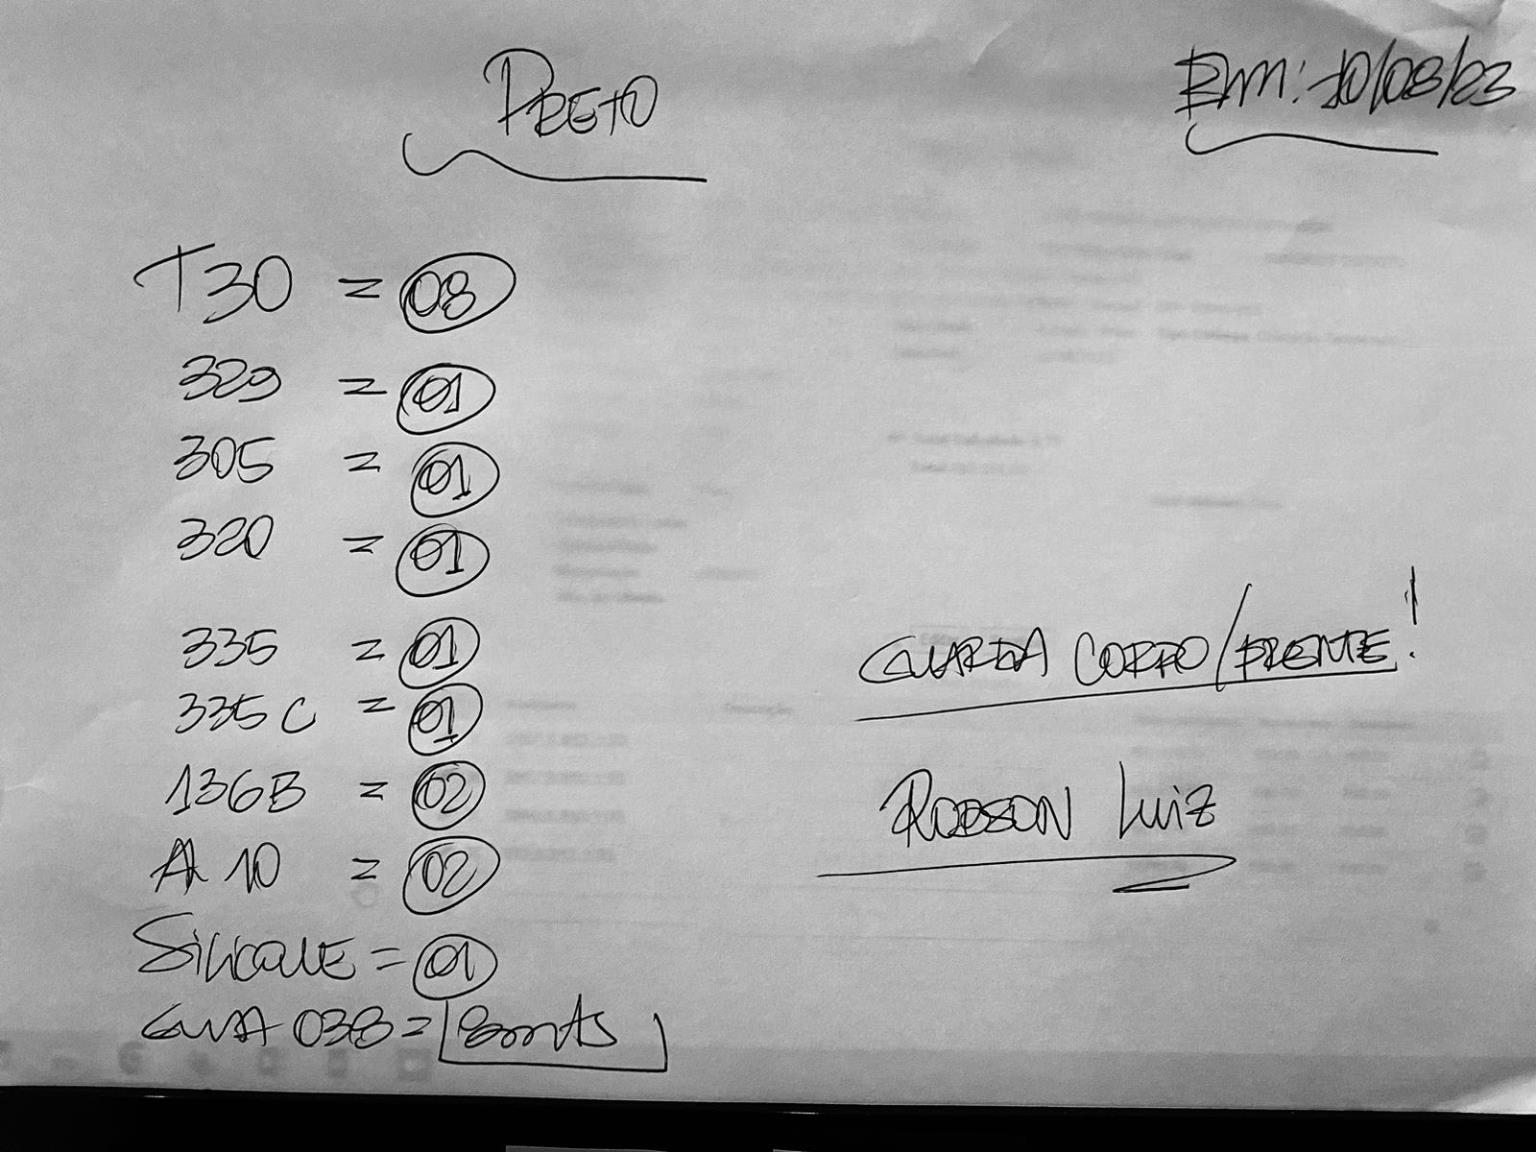 PRETO
EM: 10/08/23
T30 = 08
329 = 01
305 = 01
320 = 01
335 = 01
335 C = 01
136B = 02
AL 10 = 02
SILICONE = 01
GUIA 038 = 8mts
GUARDA CORPO/FRENTE!
ROBSON LUIZ